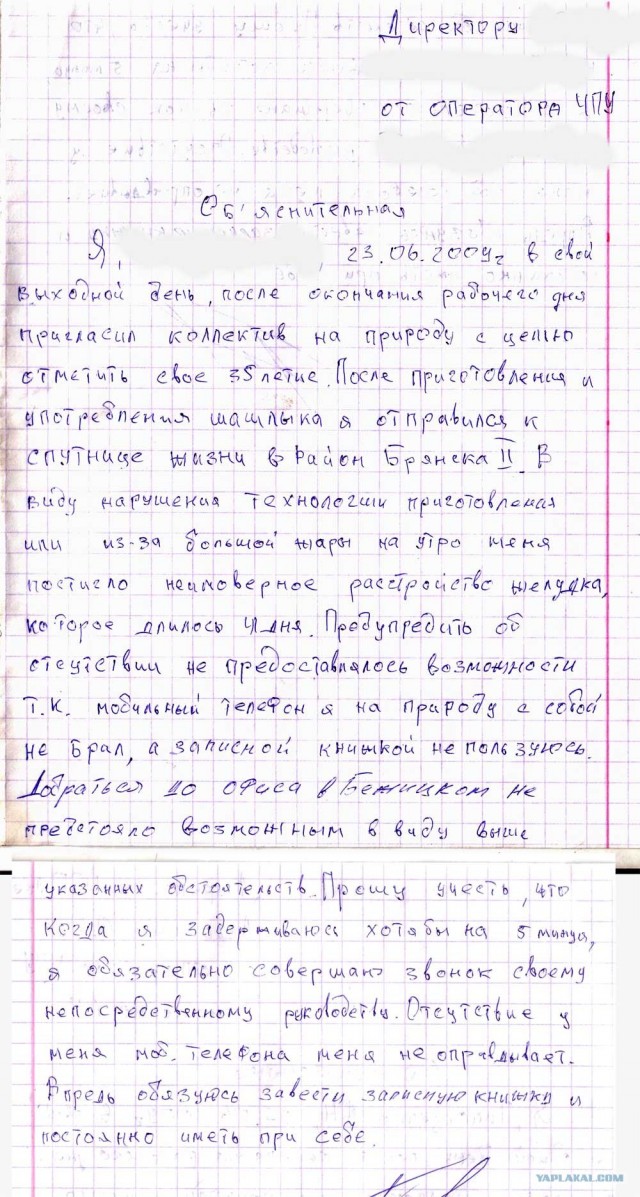 Директору
от оператора ЧПУ
Об'яснительная
Я, , 23.06.2009г в свой
выходной день, после окончания рабочего дня
пригласил коллектив на природу с целью
отметить свое 35летие. После приготовления и
употребления шашлыка я отправился к
спутнице жизни в район Брянска II. В
виду нарушения технологии приготовления
или из-за большой жары на утро меня
постигло неимоверное расстройство желудка,
которое длилось 4 дня. Предупредить об
отсутствии не предоставлялось возможности
т.к. мобильный телефон я на природу с собой
не брал, а записной книжкой не пользуюсь.
Добраться до офиса в Бежицком не
предстояло возможным в виду выше
указанных обстоятельств. Прошу учесть, что
когда я задерживаюсь хотя бы на 5 минут,
я обязательно совершаю звонок своему
непосредственному руководству. Отсутствие у
меня моб. телефона меня не оправдывает.
Впредь обязуюсь завести записную книжку и
постоянно иметь при себе.
YAPLAKAL.COM